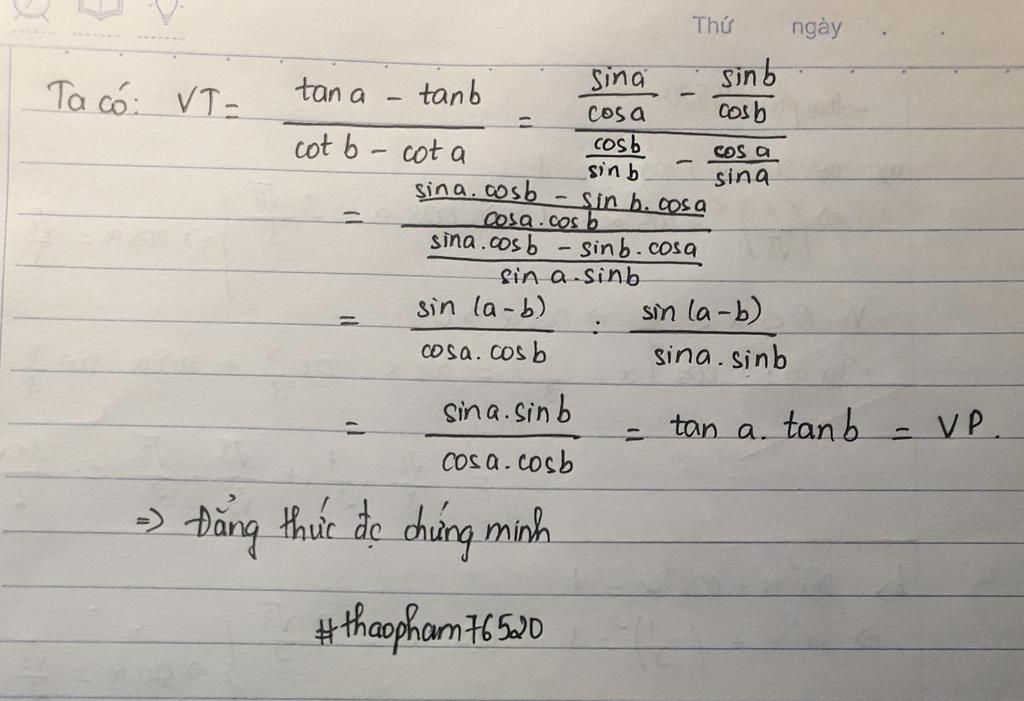 Thứ ngày . .
Ta có: VT = (tan a - tan b)/(cot b - cot a) = (sin a/cos a - sin b/cos b)/(cos b/sin b - cos a/sin a)
= ((sin a . cos b - sin b . cos a)/(cos a . cos b))/((sin a . cos b - sin b . cos a)/(sin a . sin b))
= sin (a-b)/(cos a . cos b) : sin (a-b)/(sin a . sin b)
= (sin a . sin b)/(cos a . cos b) = tan a . tan b = VP.
=> Đẳng thức đc chứng minh
#thaopham76520